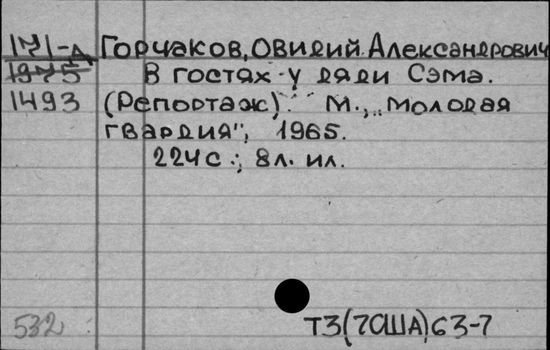 171-А Горчаков, Овидий Александрович
1975 В гостях у дяди Сэма.
1493 (Репортаж). М., „Молодая
гвардия", 1965.
224 с.; 8 л. ил.
532 Т3(7США)63-7